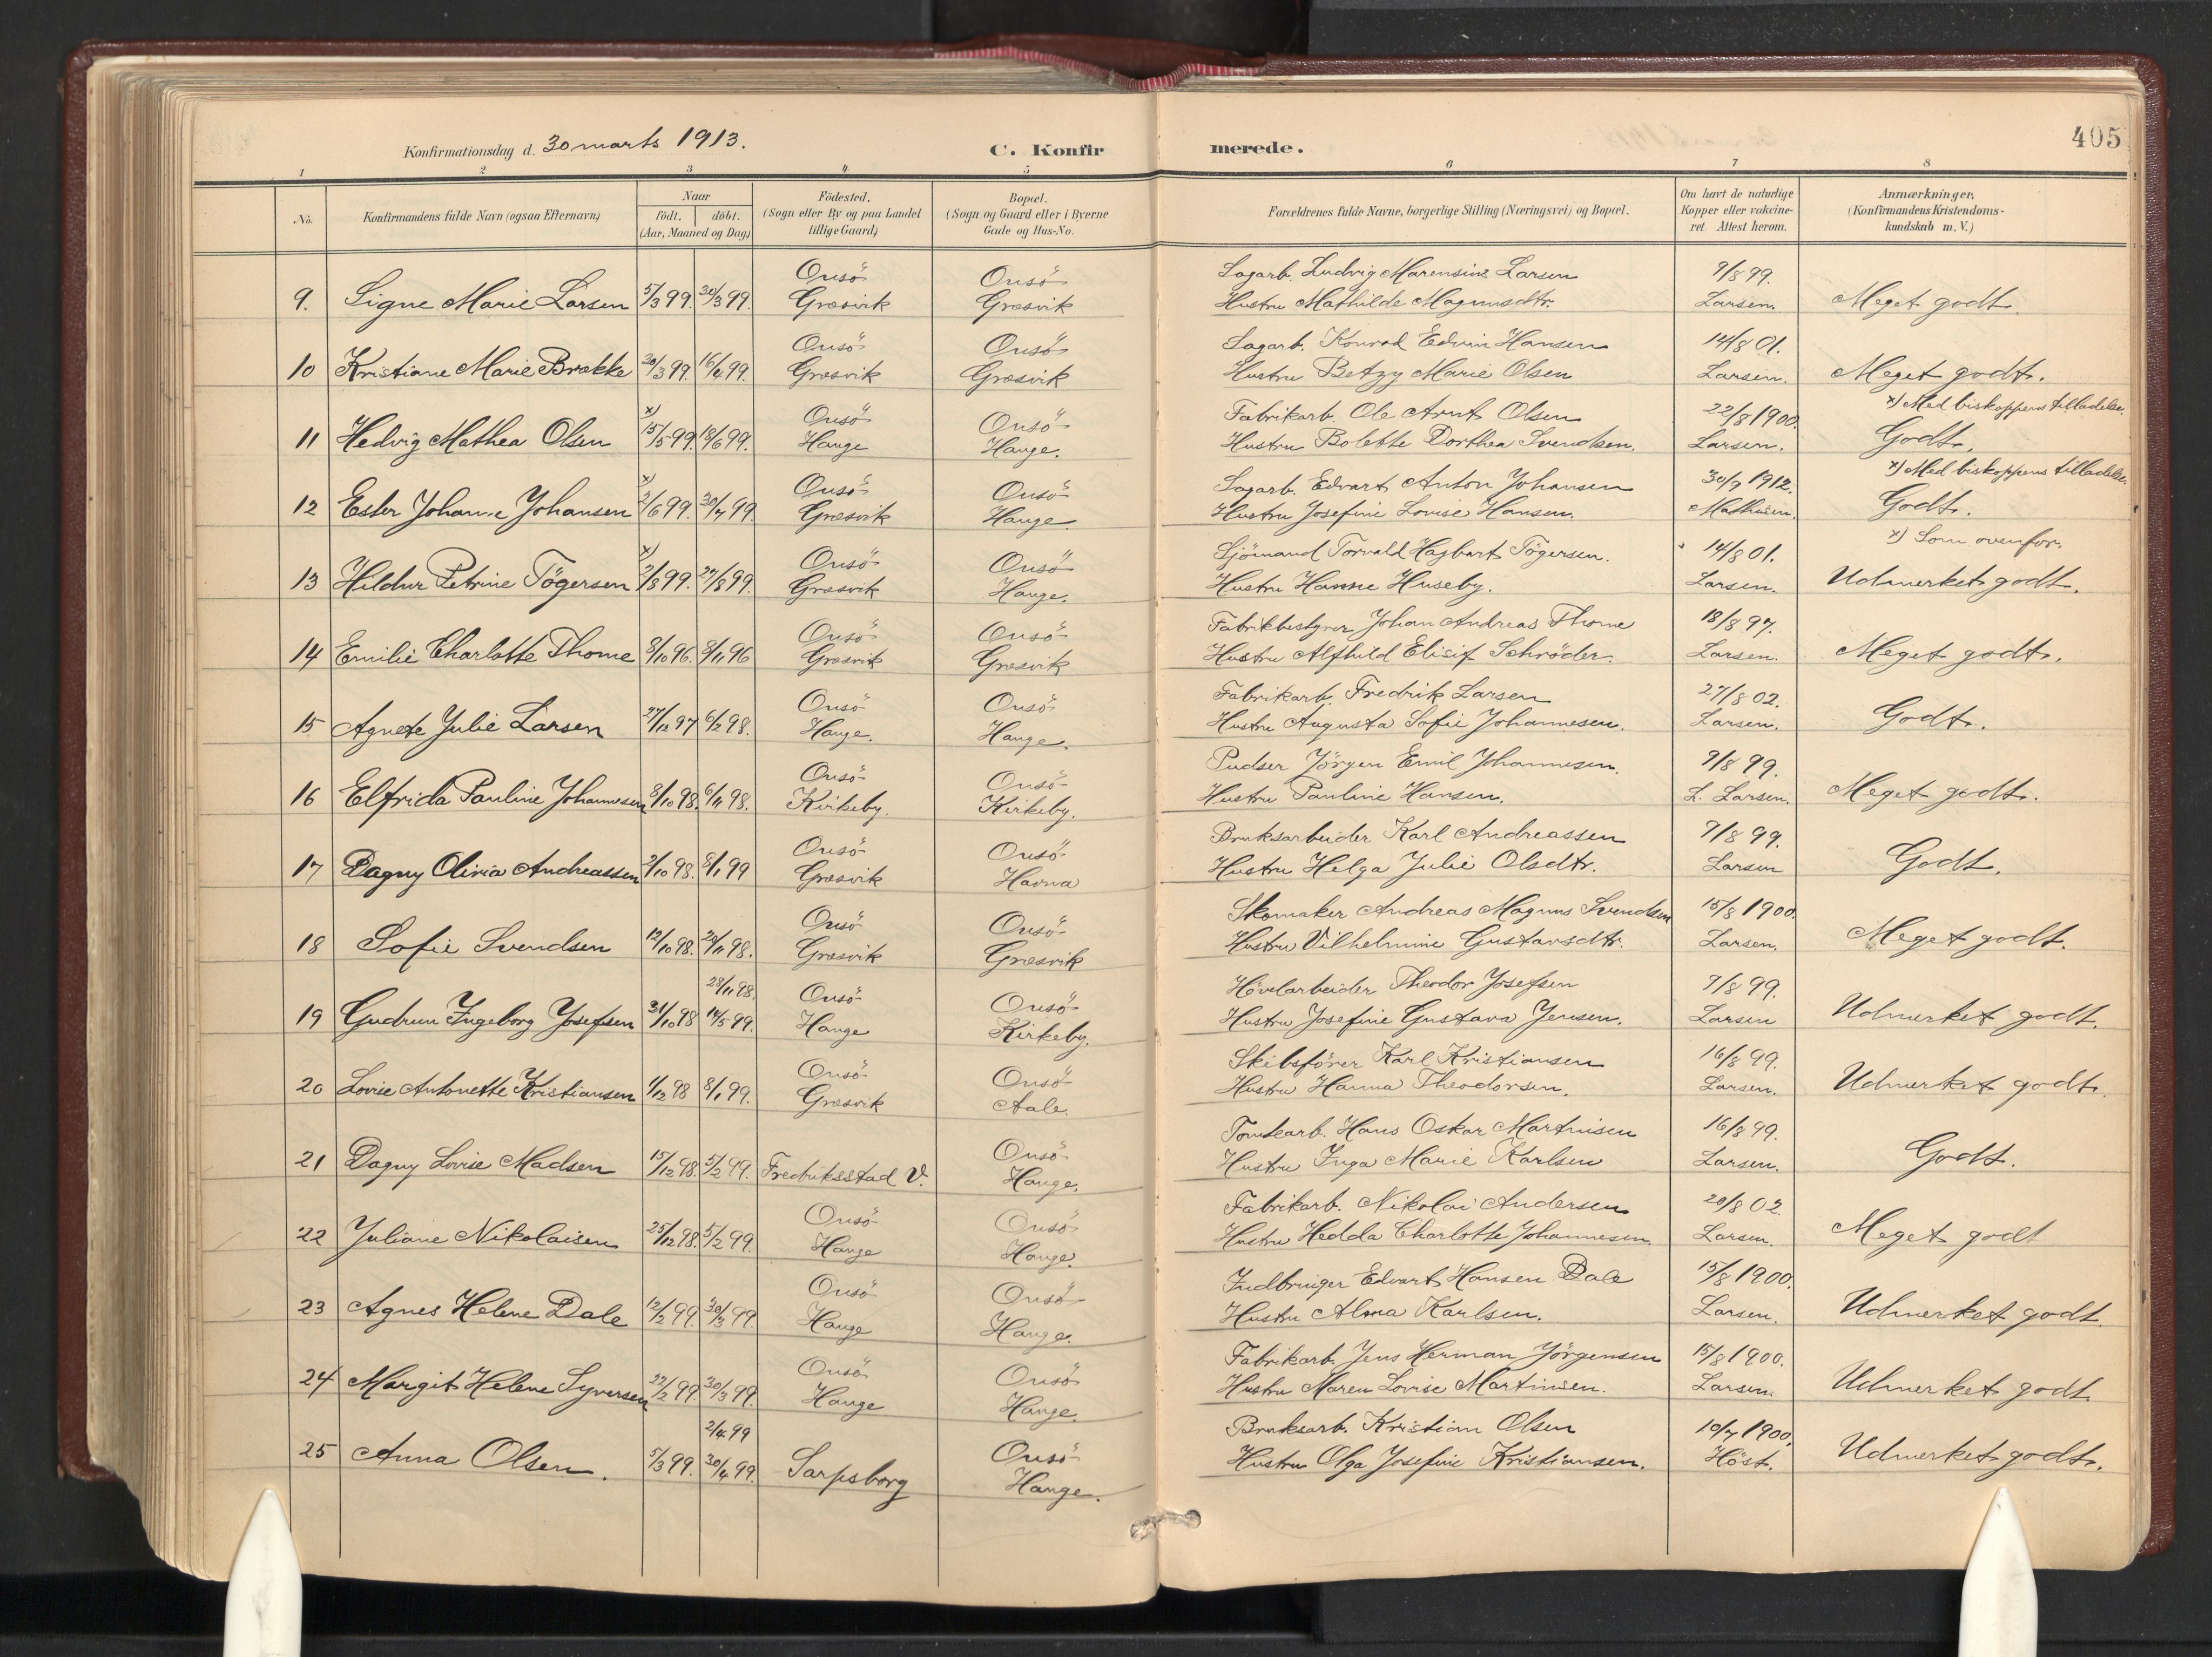 Konfirmationsdag d. 30 marts 1913. C. Konfirmerede. 405
1 2 3 4 5 6 7 8
No. Konfirmandens fulde Navn (ogsaa Efternavn) Naar født. døbt. (Aar, Maaned og Dag) Fødested. (Sogn eller By og paa Landet tillige Gaard) Bopæl. (Sogn og Gaard eller i Byerne Gade og Hus-No. Forældrenes fulde Navne, borgerlige Stilling (Næringsvei) og Bopæl. Om havt de naturlige Kopper eller vakcineret. Attest herom. Anmærkninger, (Konfirmandens Kristendomskundskab m. V.)
Onsö Onsö Sagarb. Ludvig Marensius Larsen 9/8 99.
9. Signe Marie Larsen 5/3 99. 30/3 99. Græsvik Græsvik Hustru Mathilde Magnusdtr. Larsen. Meget godt.
Onsö Onsö Sagarb. Konrad Edvin Hansen 14/8 01.
10 Kristiane Marie Brække 30/3 99. 16/4 99. Græsvik Græsvik Hustru Betzy Marie Olsen Larsen. Meget godt.
x) Onsö Onsö Fabrikarb. Ole Arnt Olsen 22/8 1900. x) Med biskoppens tilladelse.
11 Hedvig Mathea Olsen 15/5 99. 18/6 99. Hauge Hauge. Hustru Bolette Dorthea Svendsen. Larsen. Godt.
x) Onsö Onsö Sagarb. Edvart Anton Johansen 30/9 1912. x) Med biskoppens tilladelse.
12 Ester Johanne Johansen 2/6 99. 30/7 99. Græsvik Hauge Hustru Josefine Lovise Hansen. Mathisen. Godt.
x) Onsö Onsö Sjömand Torvald Hagbart Tögersen. 14/8 01. x) Som ovenfor.
13 Hildur Petrine Tögersen 2/8 99. 27/8 99. Græsvik Hauge. Hustru Hanne Huseby. Larsen. Udmerket godt.
Onsö Onsö Fabrikbestyrer Johan Andreas Thome 18/8 97.
14 Emilie Charlotte Thome 8/10 96. 8/11 96 Græsvik Græsvik Hustru Alfhild Elisif Schröder. Larsen. Meget godt.
Onsö Onsö Fabrikarb. Fredrik Larsen 27/8 02.
15 Agnete Julie Larsen 27/12 97 6/2 98. Hauge. Hauge. Hustru Augusta Sofie Johannesen. Larsen. Godt.
Onsö Onsö Pudser Jörgen Emil Johannesen. 9/8 99.
16 Elfrida Pauline Johannesen 8/10 98. 6/11 98. Kirkeby. Kirkeby. Hustru Pauline Hansen. L. Larsen. Meget godt.
Onsö Onsö Bruksarbeider Karl Andreassen 7/8 99.
17 Dagny Olivia Andreassen 2/10 98. 8/1 99 Græsvik Havna Hustru Helga Julie Olsdtr. Larsen Godt.
Onsö Onsö Skomaker Andreas Magnus Svendsen 15/8 1900.
18 Sofie Svendsen 12/10 98. 20/11 98. Græsvik Græsvik Hustru Vilhelmine Gustavsdtr. Larsen. Meget godt.
28/11 98. Onsö Onsö Hövelarbeider Theodor Josefsen 7/8 99.
19 Gudrun Ingeborg Josefsen 31/10 98 14/5 99. Hauge Kirkeby. Hustru Josefine Gustava Jensen. Larsen Udmerket godt.
Onsö Onsö Skibsförer Karl Kristiansen 16/8 99.
20 Lovise Antonette Kristiansen 1/12 98 8/1 99. Græsvik Aale. Hustru Hanna Theodorsen. Larsen. Udmerket godt.
Onsö Tomtearb. Hans Oskar Martinisen 16/8 99.
21 Dagny Lovise Madsen 15/12 98. 5/2 99. Fredriksstad V. Hauge. Hustru Inga Marie Karlsen Larsen. Godt.
Onsö Onsö Fabrikarb. Nikolai Andersen 20/8 02.
22 Juliane Nikolaisen 25/12 98. 5/2 99. Hauge Hauge. Hustru Hedda Charlotte Johannesen. Larsen. Meget godt
Onsö Onsö Indbringer Edvart Hansen Dale 15/8 1900.
23 Agnes Helene Dale 12/2 99. 30/3 99. Hauge Hauge. Hustru Alma Karlsen. Larsen. Udmerket godt.
Onsö Onsö Fabrikarb. Jens Herman Jörgensen 15/8 1900.
24 Margit Helene Syversen 22/2 99. 30/3 99. Hauge Hauge. Hustru Maren Lovise Martinsen. Larsen. Udmerket godt.
2/4 99 Onsö Bruksarb. Kristian Olsen 10/7 1900.
25 Anna Olsen. 5/3 99. 30/4 99. Sarpsborg Hauge. Hustru Olga Josefine Kristiansen. Höst. Udmerket godt.